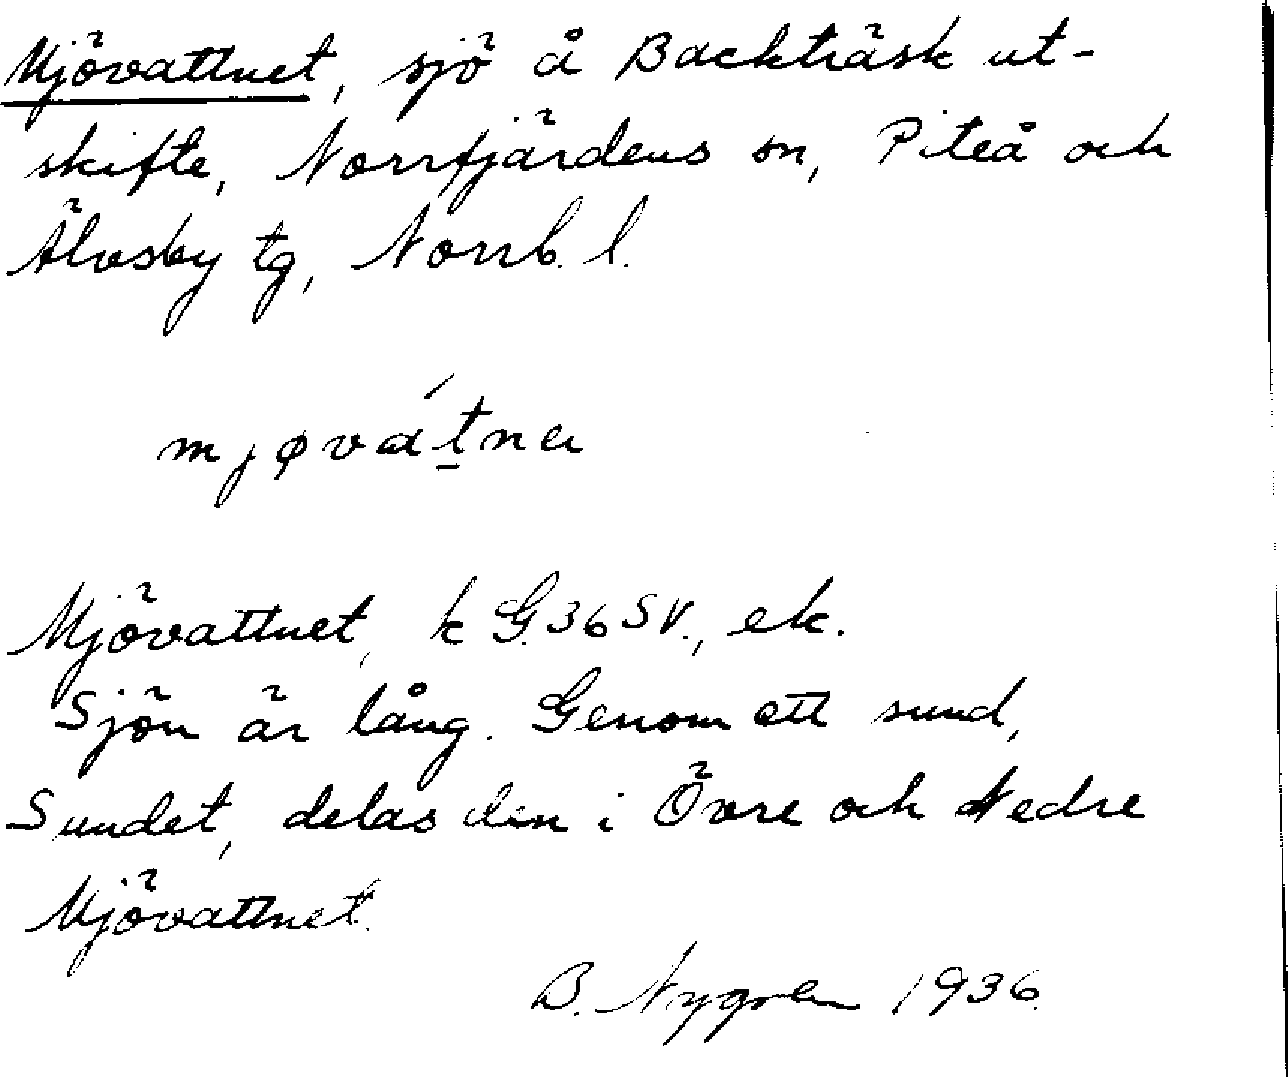 Mjövattnet, sjö å Backträsk ut-
skifte, Norrfjärdens sn, Piteå och
Älvsby tg, Norrb. l.
mjøvát̲nɐ
Mjövattnet, k G. 36 SV., ek.
Sjön är lång. Genom ett sund,
Sundet, delas den i Övre och Nedre
Mjövattnet.
B. Nygren 1936.